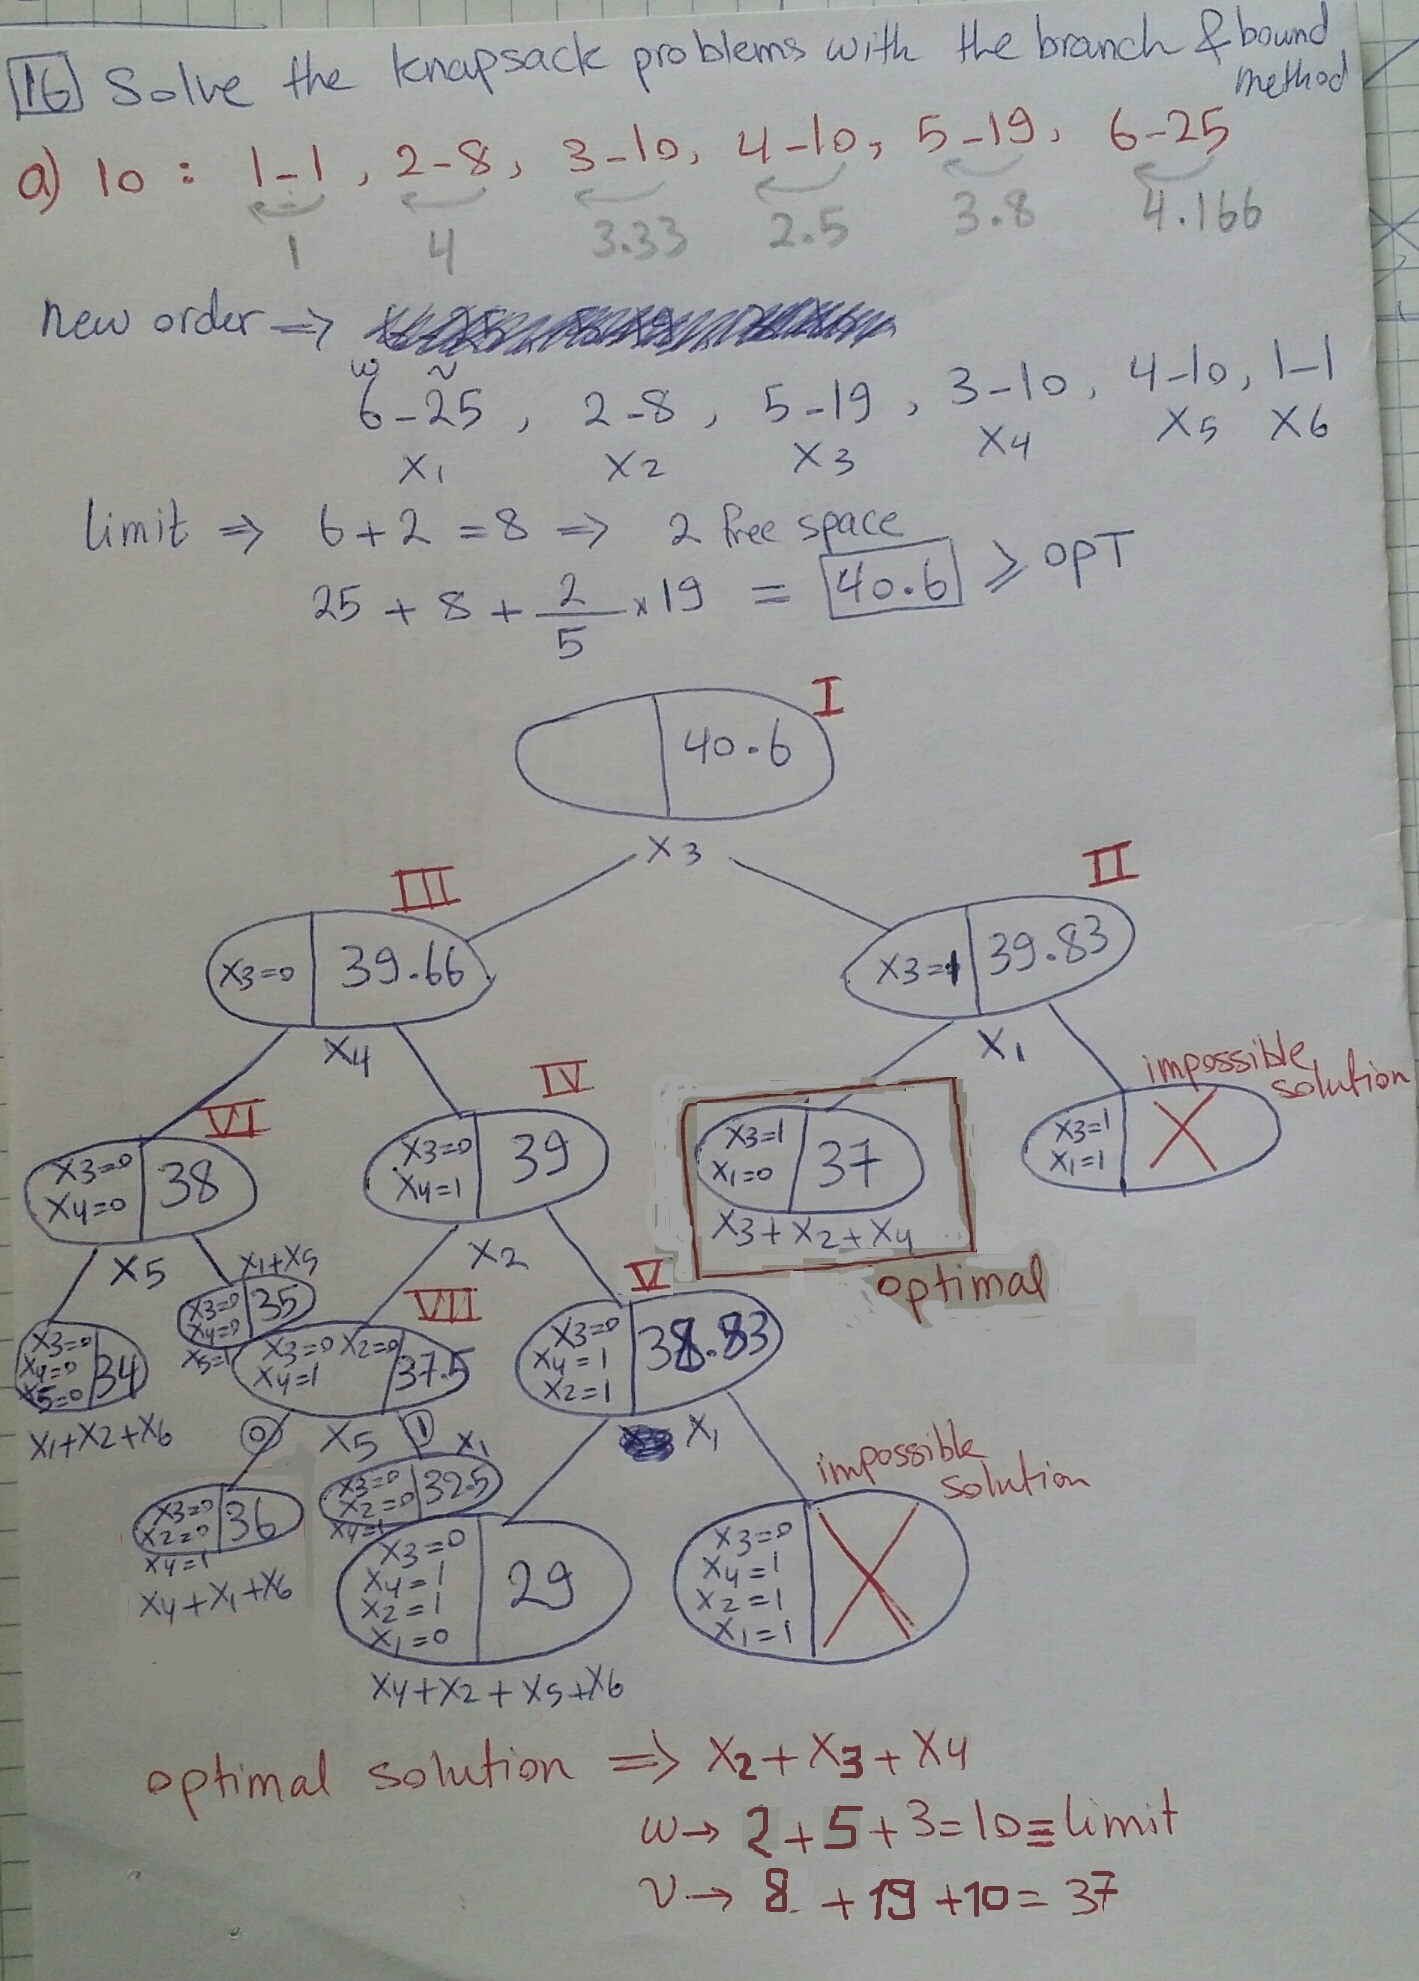 16 Solve the knapsack problems with the branch & bound method
a) 10 : 1-1, 2-8, 3-10, 4-10, 5-19, 6-25
1 4 3.33 2.5 3.8 4.166
new order ⇒
w v
6-25, 2-8, 5-19, 3-10, 4-10, 1-1
X1 X2 X3 X4 X5 X6
limit ⇒ 6+2=8 ⇒ 2 free space
25 + 8 + 2/5 × 19 = 40.6 ⩾ OPT
I
40.6
X3
III
X3=0 39.66
II
X3=1 39.83
X4
X1
VI
X3=0
X4=0
38
IV
X3=0
X4=1
39
X3=1
X1=0
37
X3+X2+X4
optimal
impossible
solution
X3=1
X1=1
X
X5
X1+X5
X3=0
X4=0
X5=1
35
X2
VII
X3=0 X2=0
X4=1
37.5
V
X3=0
X4=1
X2=1
38.83
X3=0
X4=0
X5=0
34
X1+X2+X6
0 X5 1 X1
X1
impossible
solution
X3=0
X2=0
X4=1
36
X4+X1+X6
X3=0
X2=0
X4=1
32.5
X3=0
X4=1
X2=1
X1=0
29
X4+X2+X5+X6
X3=0
X4=1
X2=1
X1=1
X
optimal solution ⇒ X2+X3+X4
w→ 2+5+3=10≡limit
v→ 8 +19+10= 37